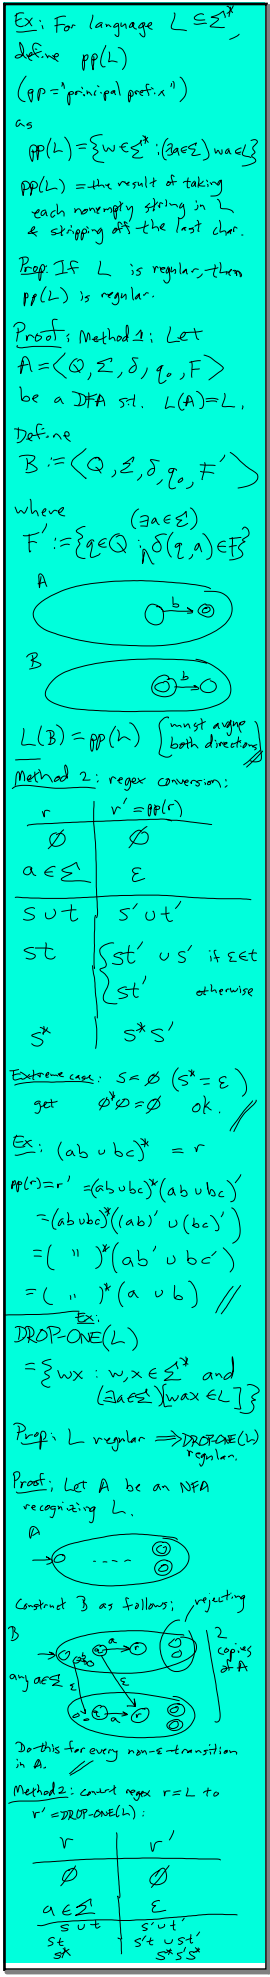 Ex: For language L ⊆ Σ*,
define pp(L)
(pp = "principal prefix")
as
pp(L) = {w ∈ Σ* : (∃a∈Σ) wa ∈ L}
pp(L) = the result of taking
each nonempty string in L
& stripping off the last char.
Prop: If L is regular, then
pp(L) is regular.
Proof: Method 1: Let
A = <Q, Σ, δ, q₀, F>
be a DFA s.t. L(A) = L.
Define
B := <Q, Σ, δ, q₀, F'>
where (∃a∈Σ)
F' := {q ∈ Q : δ(q,a) ∈ F}
A
b
B
b
L(B) = pp(L) [must argue
both directions]
Method 2: regex conversion:
r r' = pp(r)
∅ ∅
a ∈ Σ ε
s ∪ t s' ∪ t'
st { st' ∪ s' if ε ∈ t
st' otherwise
s* s* s'
Extreme case: s = ∅ (s* = ε)
get ∅*∅ = ∅ ok. //
Ex: (ab ∪ bc)* = r
pp(r) = r' = (ab ∪ bc)* (ab ∪ bc)'
= (ab ∪ bc)* ((ab)' ∪ (bc)')
= ( " )* (ab' ∪ bc')
= ( " )* (a ∪ b) //
Ex:
DROP-ONE(L)
= {wx : w,x ∈ Σ* and
(∃a∈Σ)[wax ∈ L]}
Prop: L regular ⟹ DROP-ONE(L)
regular.
Proof: Let A be an NFA
recognizing L.
A
- - - -
Construct B as follows:
rejecting
B
a r
2
copies
of A
any a∈Σ ε ε
a r
Do this for every non-ε-transition
in A. //
Method 2: convert regex r = L to
r' = DROP-ONE(L):
r r'
∅ ∅
a ∈ Σ ε
s ∪ t s' ∪ t'
st s't ∪ st'
s* s* s' s*